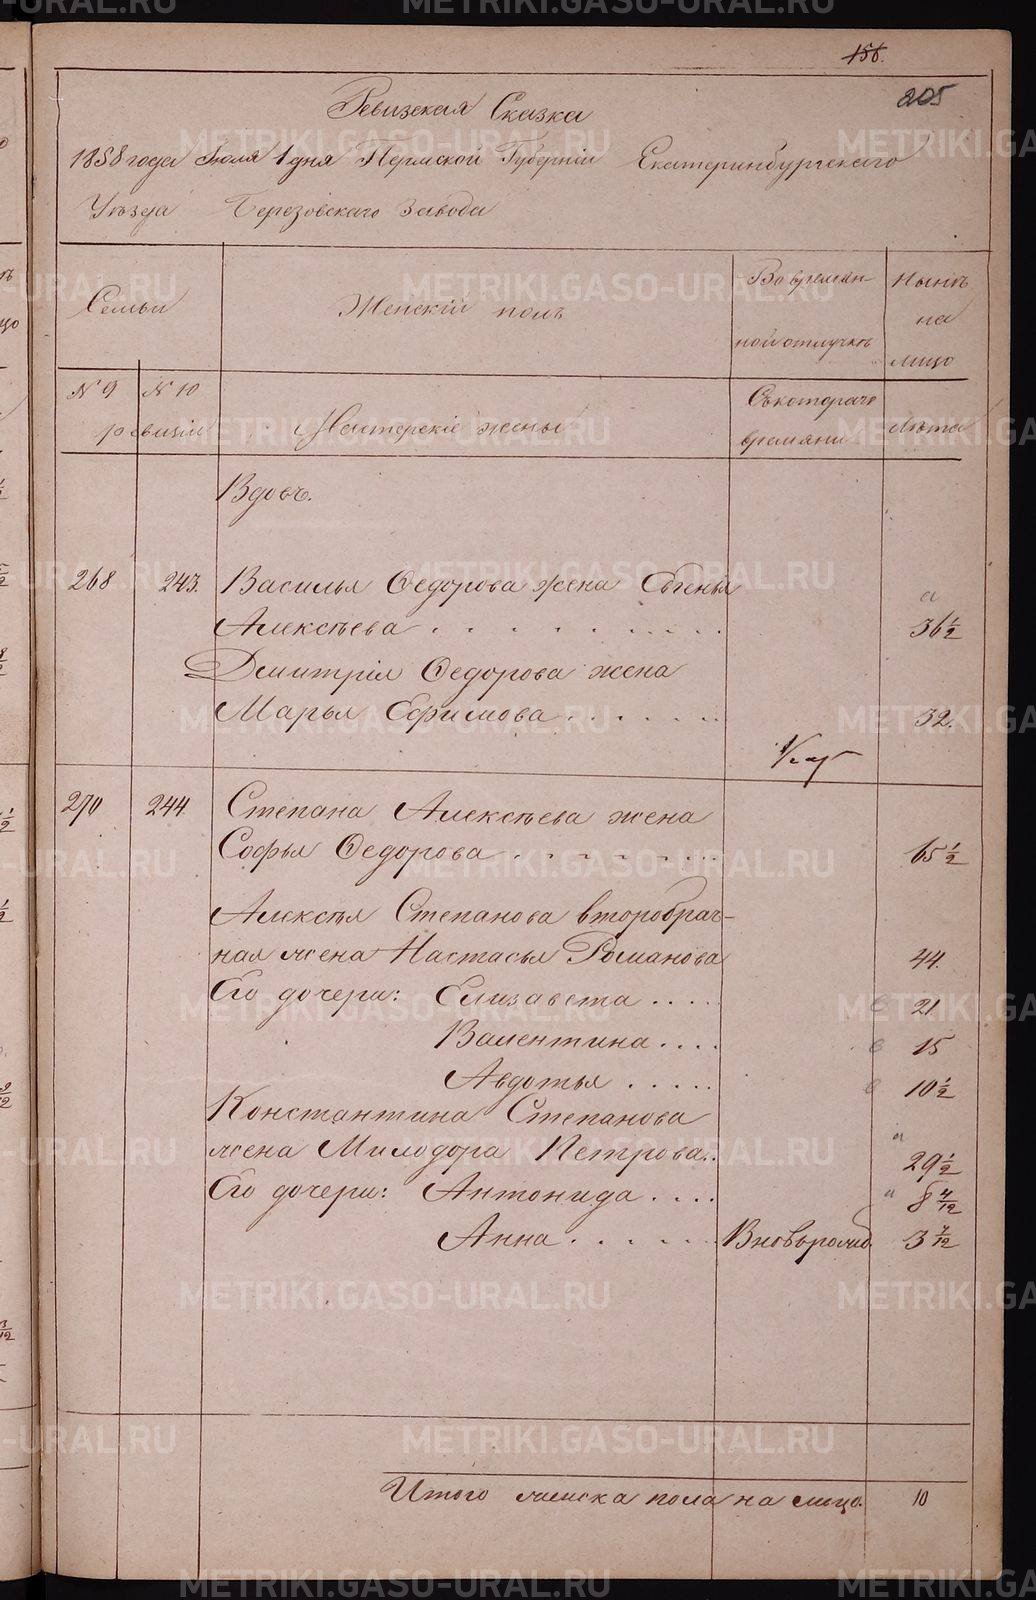 156.
205
Ревизская Сказка
1858 года Июля 1 дня Пермской Губерніи Екатеринбургскаго
Уѣзда Березовскаго Завода
Семьи
Женскій полъ
Во времян-
ной отлучкѣ
Нынѣ
на
лицо
№ 9 № 10
ревизіи
Мастерскіе жены
Съ котораго
времяни
Лѣта
Вдовъ.
268 243. Василья Федорова жена Евгенья
Алексѣева . . . . . . . . . 36 1/2
Дмитрія Федорова жена
Марья Ефимова . . . . . . 32.
270 244 Степана Алексѣева жена
Софья Федорова . . . . . . . 65 1/2
Алексѣя Степанова второбрач-
ная жена Настасья Романова 44.
Его дочери: Елизавета . . . . 21
Валентина . . . . 15
Авдотья . . . . . 10 1/2
Константина Степанова
жена Милодора Петрова . . 29 1/2
Его дочери: Антонида . . . . 8 4/12
Анна . . . . . . Вновьрожд. 3 7/12
Итого женска пола на лицо. 10
METRIKI.GASO-URAL.RU